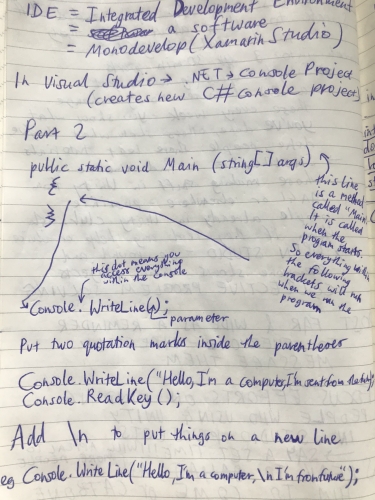 IDE = Integrated Development Environment
= a software
= Monodevelop (Xamarin Studio)
In Visual Studio → .NET → Console Project
(creates new C# console project)
Part 2
public static void Main (string[] args)
{
}
this line
is a method
called "Main."
It is called
when the
program starts.
So everything within
the following
brackets will run
when we run the
program
this dot means you
access everything
within the console
Console.WriteLine( );
parameter
Put two quotation marks inside the parentheses
Console.WriteLine("Hello, I'm a computer, I'm sent from the
Console.ReadKey();
Add \n to put things on a new line
eg Console.WriteLine("Hello, I'm a computer, \n I'm from future");